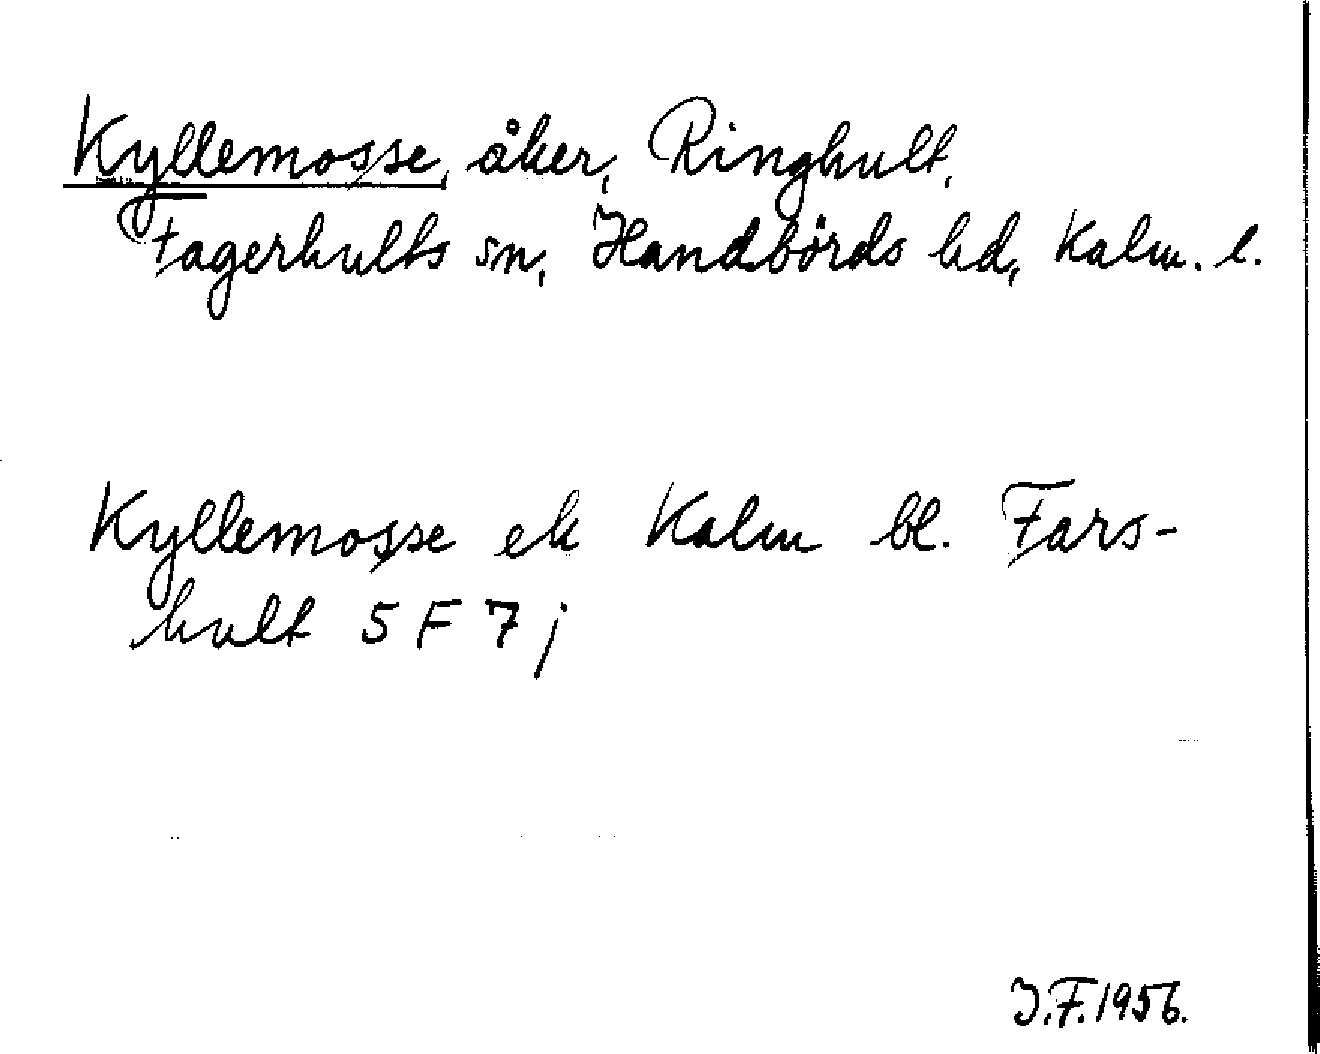 Kyllemosse, åker, Ringhult,
Fagerhults sn, Handbörds hd, Kalm. l.
Kyllemosse ek Kalm bl. Fars-
hult 5 F 7 j
J.F. 1956.